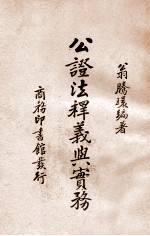 翁騰環編著
公證法釋義與實務
商務印書館發行